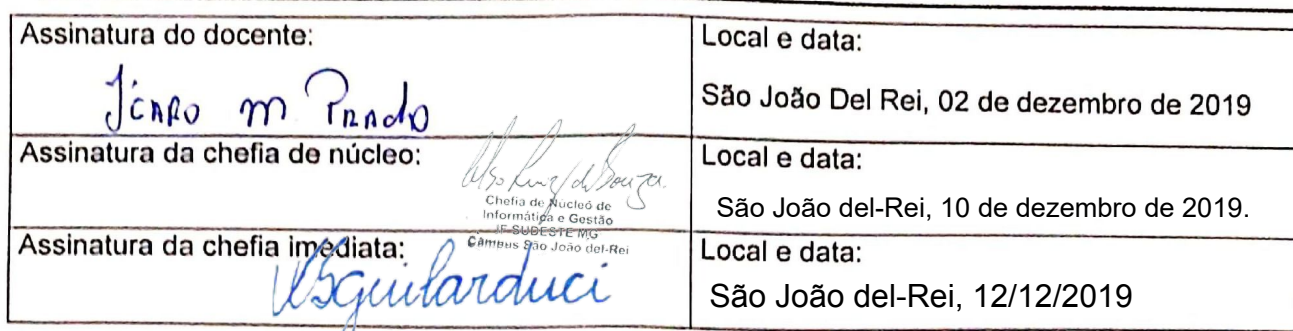 Assinatura do docente:
Ícaro M Prado
Local e data:
São João Del Rei, 02 de dezembro de 2019
Assinatura da chefia de núcleo:
Souza
Chefia de Núcleo de
Informática e Gestão
IF SUDESTE MG
Câmpus São João del-Rei
Local e data:
São João del-Rei, 10 de dezembro de 2019.
Assinatura da chefia imediata:
Local e data:
São João del-Rei, 12/12/2019